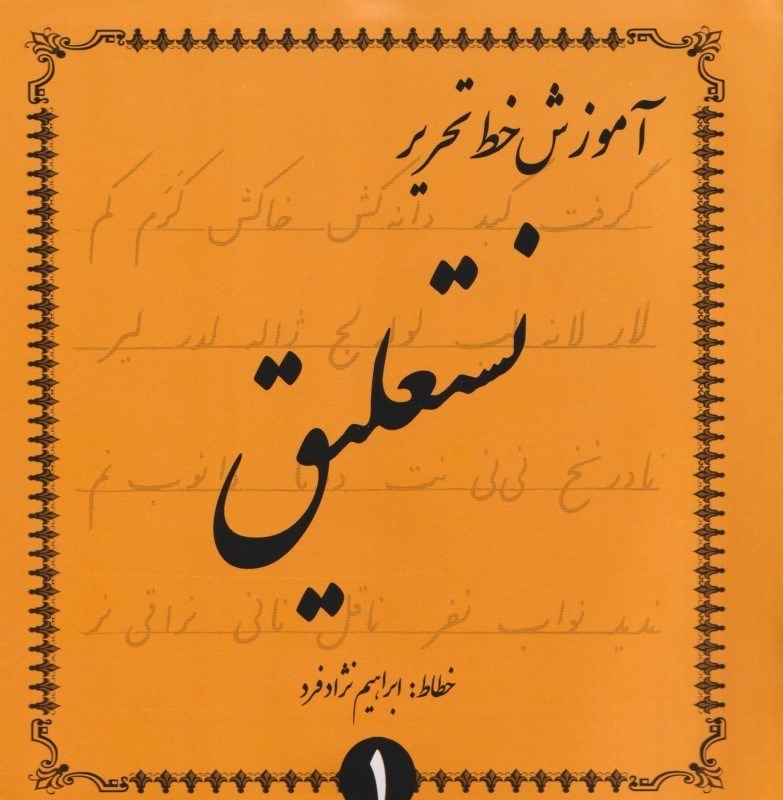 آموزش خط تحریر
گرفت کبد دانه کش خاکش کرم کم
نستعلیق
لار لانه لب لوله لج ژاله لدر لیر
نادر نخ نی‌نی نت دانوب نم
ندید نواب نفر ناقل نانی نراقی نر
خطاط: ابراهیم نژادفرد
۱